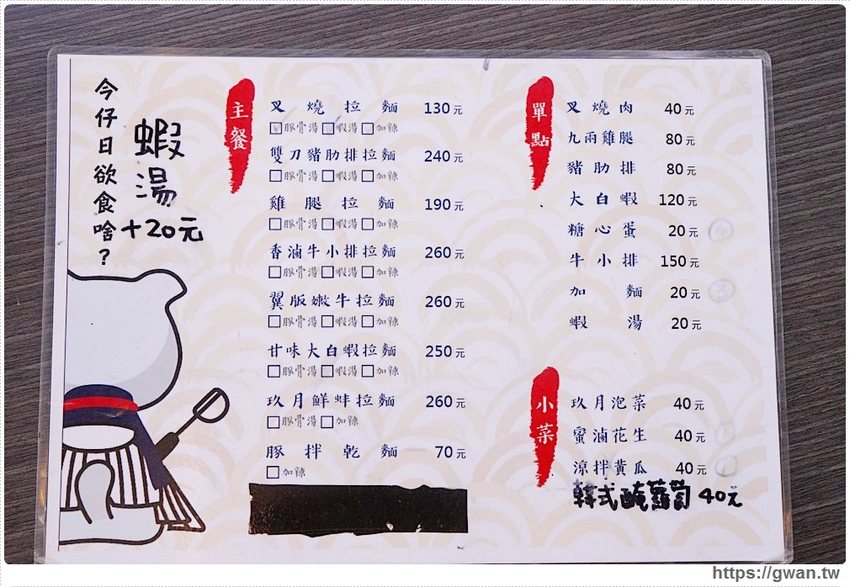 今仔日欲食啥？
蝦湯
+20元
主餐
叉燒拉麵 130元
□豚骨湯 □蝦湯 □加辣
雙刀豬肋排拉麵 240元
□豚骨湯 □蝦湯 □加辣
雞腿拉麵 190元
□豚骨湯 □蝦湯 □加辣
香滷牛小排拉麵 260元
□豚骨湯 □蝦湯 □加辣
翼版嫩牛拉麵 260元
□豚骨湯 □蝦湯 □加辣
甘味大白蝦拉麵 250元
□豚骨湯 □蝦湯 □加辣
玖月鮮蚌拉麵 260元
□豚骨湯 □加辣
豚拌乾麵 70元
□加辣
單點
叉燒肉 40元
九兩雞腿 80元
豬肋排 80元
大白蝦 120元
糖心蛋 20元
牛小排 150元
加麵 20元
蝦湯 20元
小菜
玖月泡菜 40元
蜜滷花生 40元
涼拌黃瓜 40元
韓式醃蘿蔔 40元
https://gwan.tw